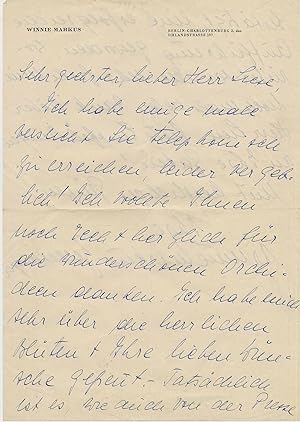 WINNIE MARKUS
BERLIN-CHARLOTTENBURG 2, den
Sehr geehrter, lieber Herr
Ich habe einige male
versucht Sie telephonisch
zu erreichen, leider vergeb-
lich! Ich wollte Ihnen
noch recht herzlich für
die wunderschönen Orchi-
deen danken. Ich habe mich
sehr über die herrlichen
Blüten + Ihre lieben Wün-
sche gefreut. - Tatsächlich
ist es wie auch von der Presse